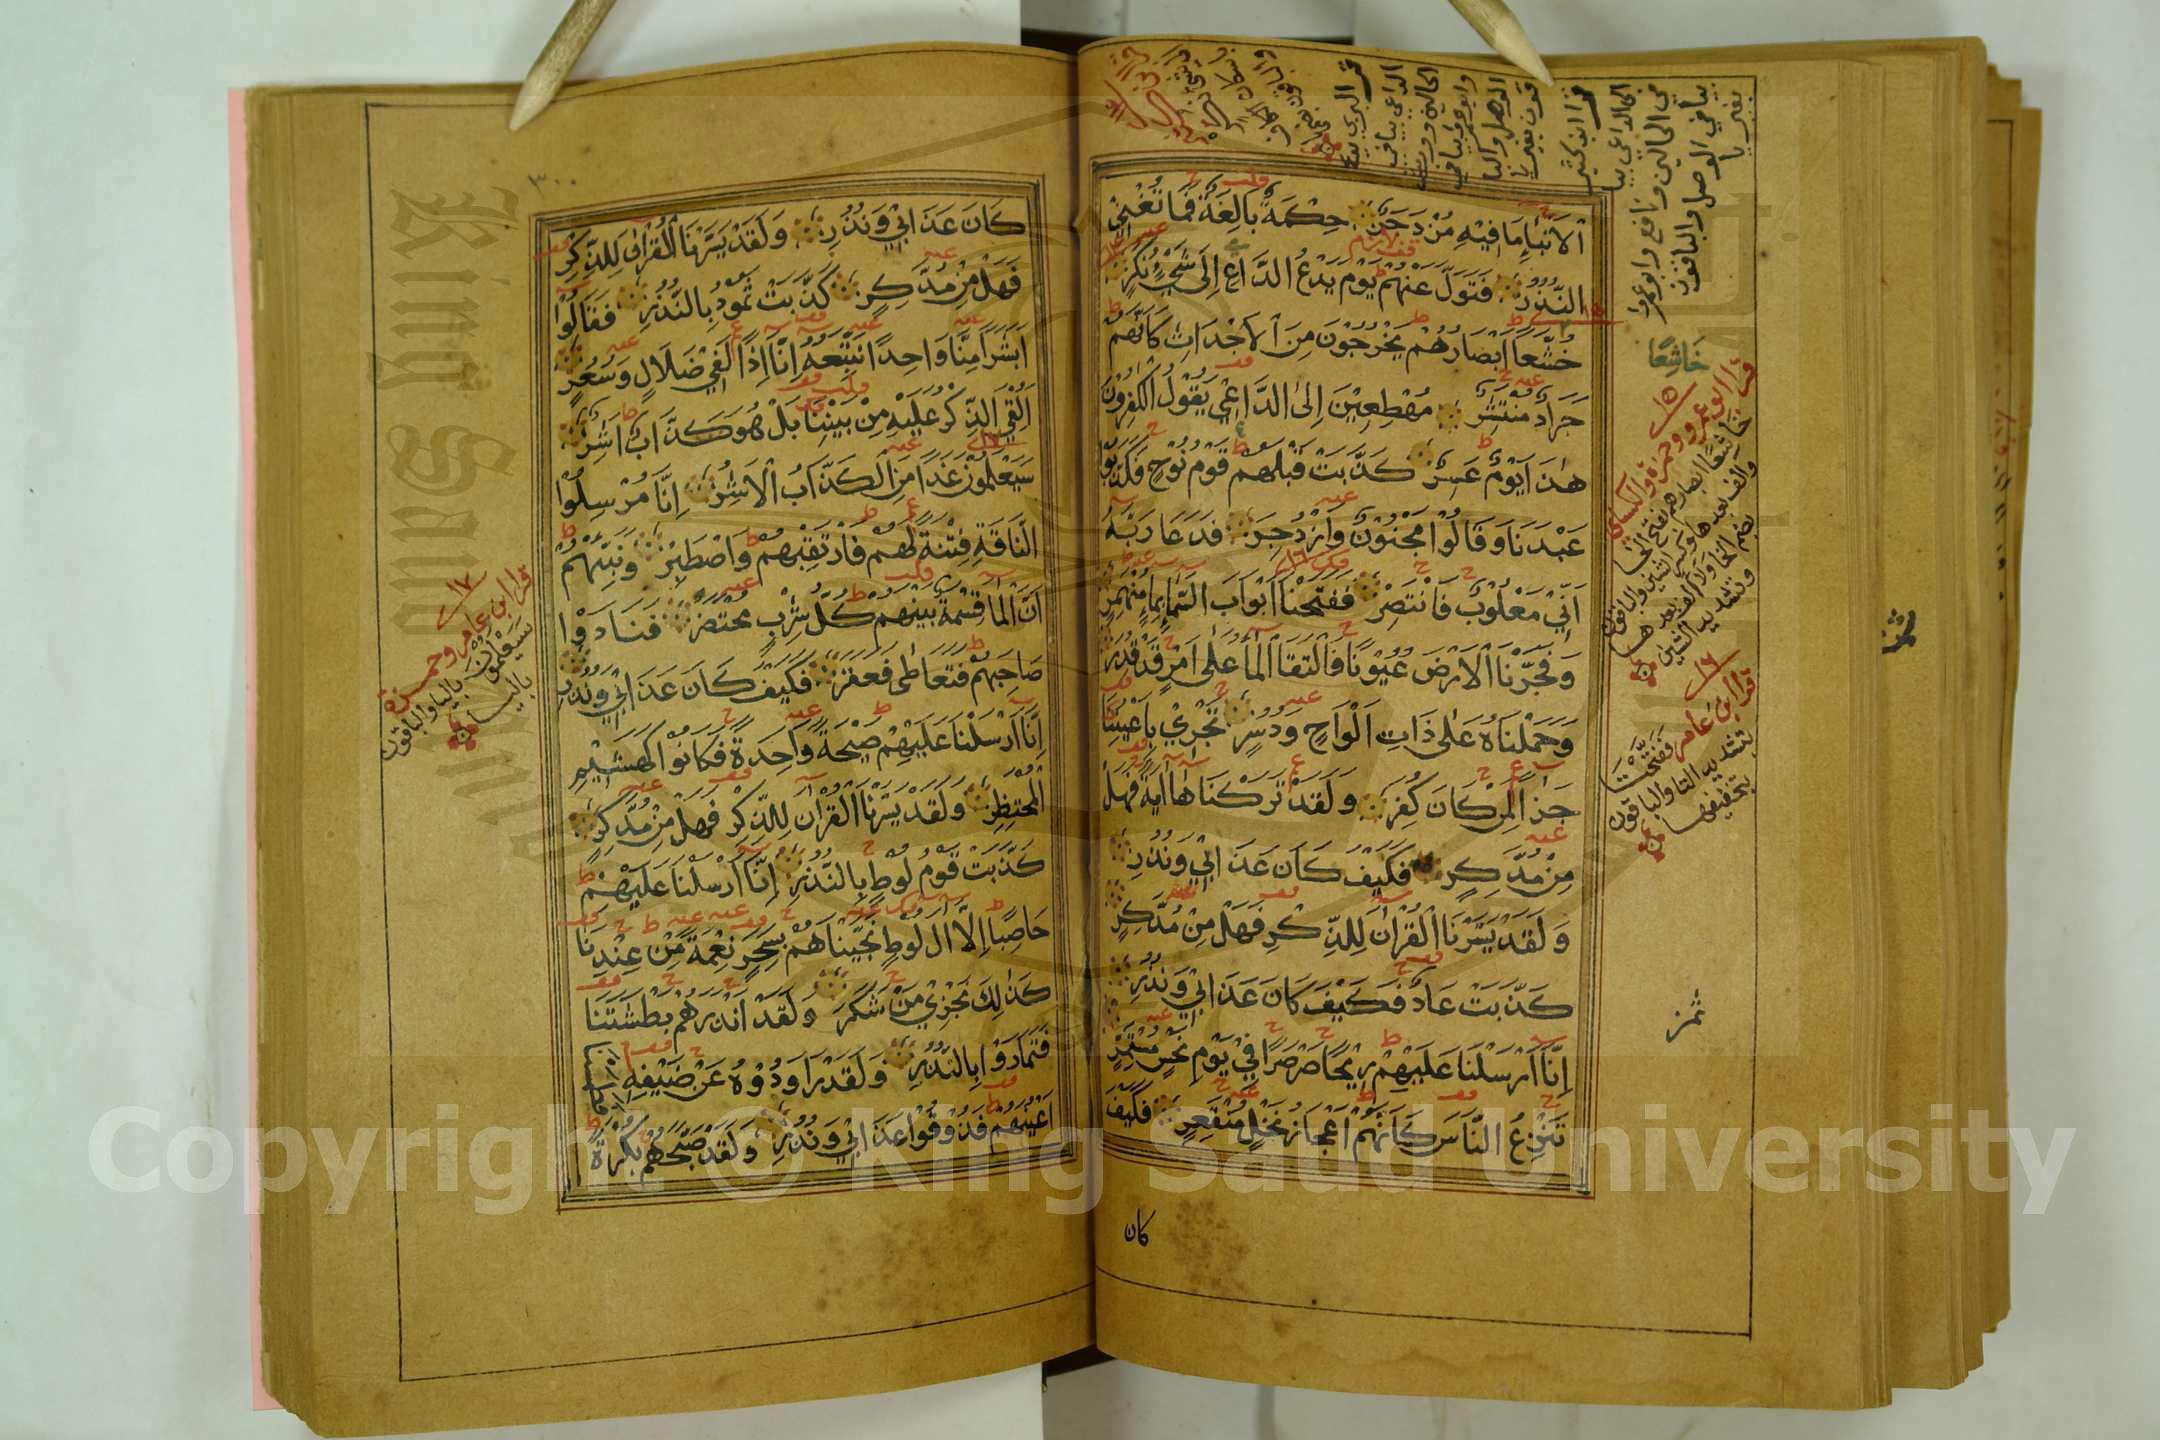 الْاَنْبَاۤءِ مَا فِيْهِ مُزْدَجَرٌ حِكْمَةٌ بَالِغَةٌ فَمَا تُغْنِ
النُّذُرُ فَتَوَلَّ عَنْهُمْ يَوْمَ يَدْعُ الدَّاعِ اِلَى شَيْءٍ نُكُرٍ
خُشَّعًا اَبْصَارُهُمْ يَخْرُجُوْنَ مِنَ الْاَجْدَاثِ كَاَنَّهُمْ
جَرَادٌ مُنْتَشِرٌ مُهْطِعِيْنَ اِلَى الدَّاعِ يَقُوْلُ الْكٰفِرُوْنَ
هٰذَا يَوْمٌ عَسِرٌ كَذَّبَتْ قَبْلَهُمْ قَوْمُ نُوْحٍ فَكَذَّبُوْا
عَبْدَنَا وَقَالُوْا مَجْنُوْنٌ وَازْدُجِرَ فَدَعَا رَبَّهُ
اَنِّيْ مَغْلُوْبٌ فَانْتَصِرْ فَفَتَحْنَا اَبْوَابَ السَّمَاۤءِ بِمَاۤءٍ مُنْهَمِرٍ
وَفَجَّرْنَا الْاَرْضَ عُيُوْنًا فَالْتَقَا الْمَاۤءُ عَلٰى اَمْرٍ قَدْ قُدِرَ
وَحَمَلْنَاهُ عَلٰى ذَاتِ اَلْوَاحٍ وَدُسُرٍ تَجْرِيْ بِاَعْيُنِنَا
جَزَاۤءً لِمَنْ كَانَ كُفِرَ وَلَقَدْ تَرَكْنَاهَا اٰيَةً فَهَلْ
مِنْ مُدَّكِرٍ فَكَيْفَ كَانَ عَذَابِيْ وَنُذُرِ
وَلَقَدْ يَسَّرْنَا الْقُرْاٰنَ لِلذِّكْرِ فَهَلْ مِنْ مُدَّكِرٍ
كَذَّبَتْ عَادٌ فَكَيْفَ كَانَ عَذَابِيْ وَنُذُرِ
اِنَّا اَرْسَلْنَا عَلَيْهِمْ رِيْحًا صَرْصَرًا فِيْ يَوْمِ نَحْسٍ مُسْتَمِرٍّ
تَنْزِعُ النَّاسَ كَاَنَّهُمْ اَعْجَازُ نَخْلٍ مُنْقَعِرٍ فَكَيْفَ
كان
خَاشِعًا
١٥
قرا ابو عمرو وحمزة والكسائي
خاشعًا ابصارهم بفتح الخا
والف بعدها وكسر الشين والباقون
بضم الخا ولا الف بعدها
وتشديد الشين
١٦
قرا ابن عامر ففتّحنا
بتشديد التا والباقون
بتخفيفها
٣٠٠
كَانَ عَذَابِيْ وَنُذُرِ وَلَقَدْ يَسَّرْنَا الْقُرْاٰنَ لِلذِّكْرِ
فَهَلْ مِنْ مُدَّكِرٍ كَذَّبَتْ ثَمُوْدُ بِالنُّذُرِ فَقَالُوْا
اَبَشَرًا مِنَّا وَاحِدًا نَتَّبِعُهُ اِنَّا اِذًا لَفِيْ ضَلَالٍ وَسُعُرٍ
اَلْقِيَ الذِّكْرُ عَلَيْهِ مِنْ بَيْنِنَا بَلْ هُوَ كَذَّابٌ اَشِرٌ
سَيَعْلَمُوْنَ غَدًا مَنِ الْكَذَّابُ الْاَشِرُ اِنَّا مُرْسِلُوْا
النَّاقَةِ فِتْنَةً لَهُمْ فَارْتَقِبْهُمْ وَاصْطَبِرْ وَنَبِّئْهُمْ
اَنَّ الْمَاۤءَ قِسْمَةٌ بَيْنَهُمْ كُلُّ شِرْبٍ مُحْتَضَرٌ فَنَادَوْا
صَاحِبَهُمْ فَتَعَاطٰى فَعَقَرَ فَكَيْفَ كَانَ عَذَابِيْ وَنُذُرِ
اِنَّا اَرْسَلْنَا عَلَيْهِمْ صَيْحَةً وَاحِدَةً فَكَانُوْا كَهَشِيْمِ
الْمُحْتَظِرِ وَلَقَدْ يَسَّرْنَا الْقُرْاٰنَ لِلذِّكْرِ فَهَلْ مِنْ مُدَّكِرٍ
كَذَّبَتْ قَوْمُ لُوْطٍ بِالنُّذُرِ اِنَّا اَرْسَلْنَا عَلَيْهِمْ
حَاصِبًا اِلَّا اٰلَ لُوْطٍ نَجَّيْنَاهُمْ بِسَحَرٍ نِعْمَةً مِنْ عِنْدِنَا
كَذٰلِكَ نَجْزِيْ مَنْ شَكَرَ وَلَقَدْ اَنْذَرَهُمْ بَطْشَتَنَا
فَتَمَارَوْا بِالنُّذُرِ وَلَقَدْ رَاوَدُوْهُ عَنْ ضَيْفِهِ فَطَمَسْنَا
اَعْيُنَهُمْ فَذُوْقُوْا عَذَابِيْ وَنُذُرِ وَلَقَدْ صَبَّحَهُمْ بُكْرَةً
١٧
قرا ابن عامر وحمزة
ستعلمون بالتا والباقون
باليا
King Saud University
Copyright © King Saud University